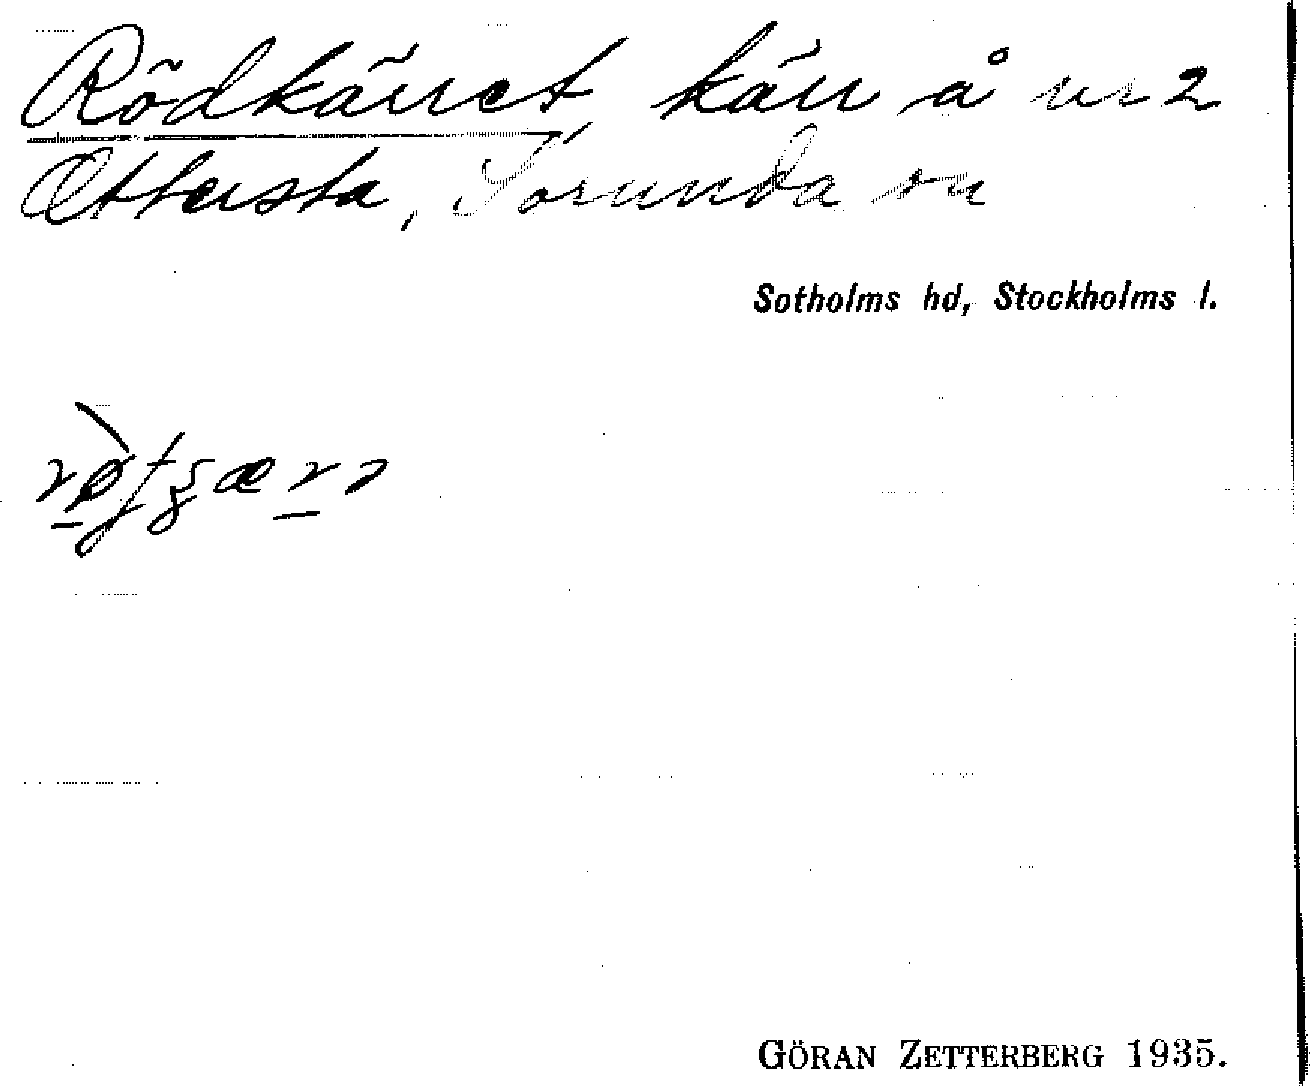 Rödkärret, kärr å nr 2
Ettersta, Sorunda sn
Sotholms hd, Stockholms l.
GÖRAN ZETTERBERG 1935.